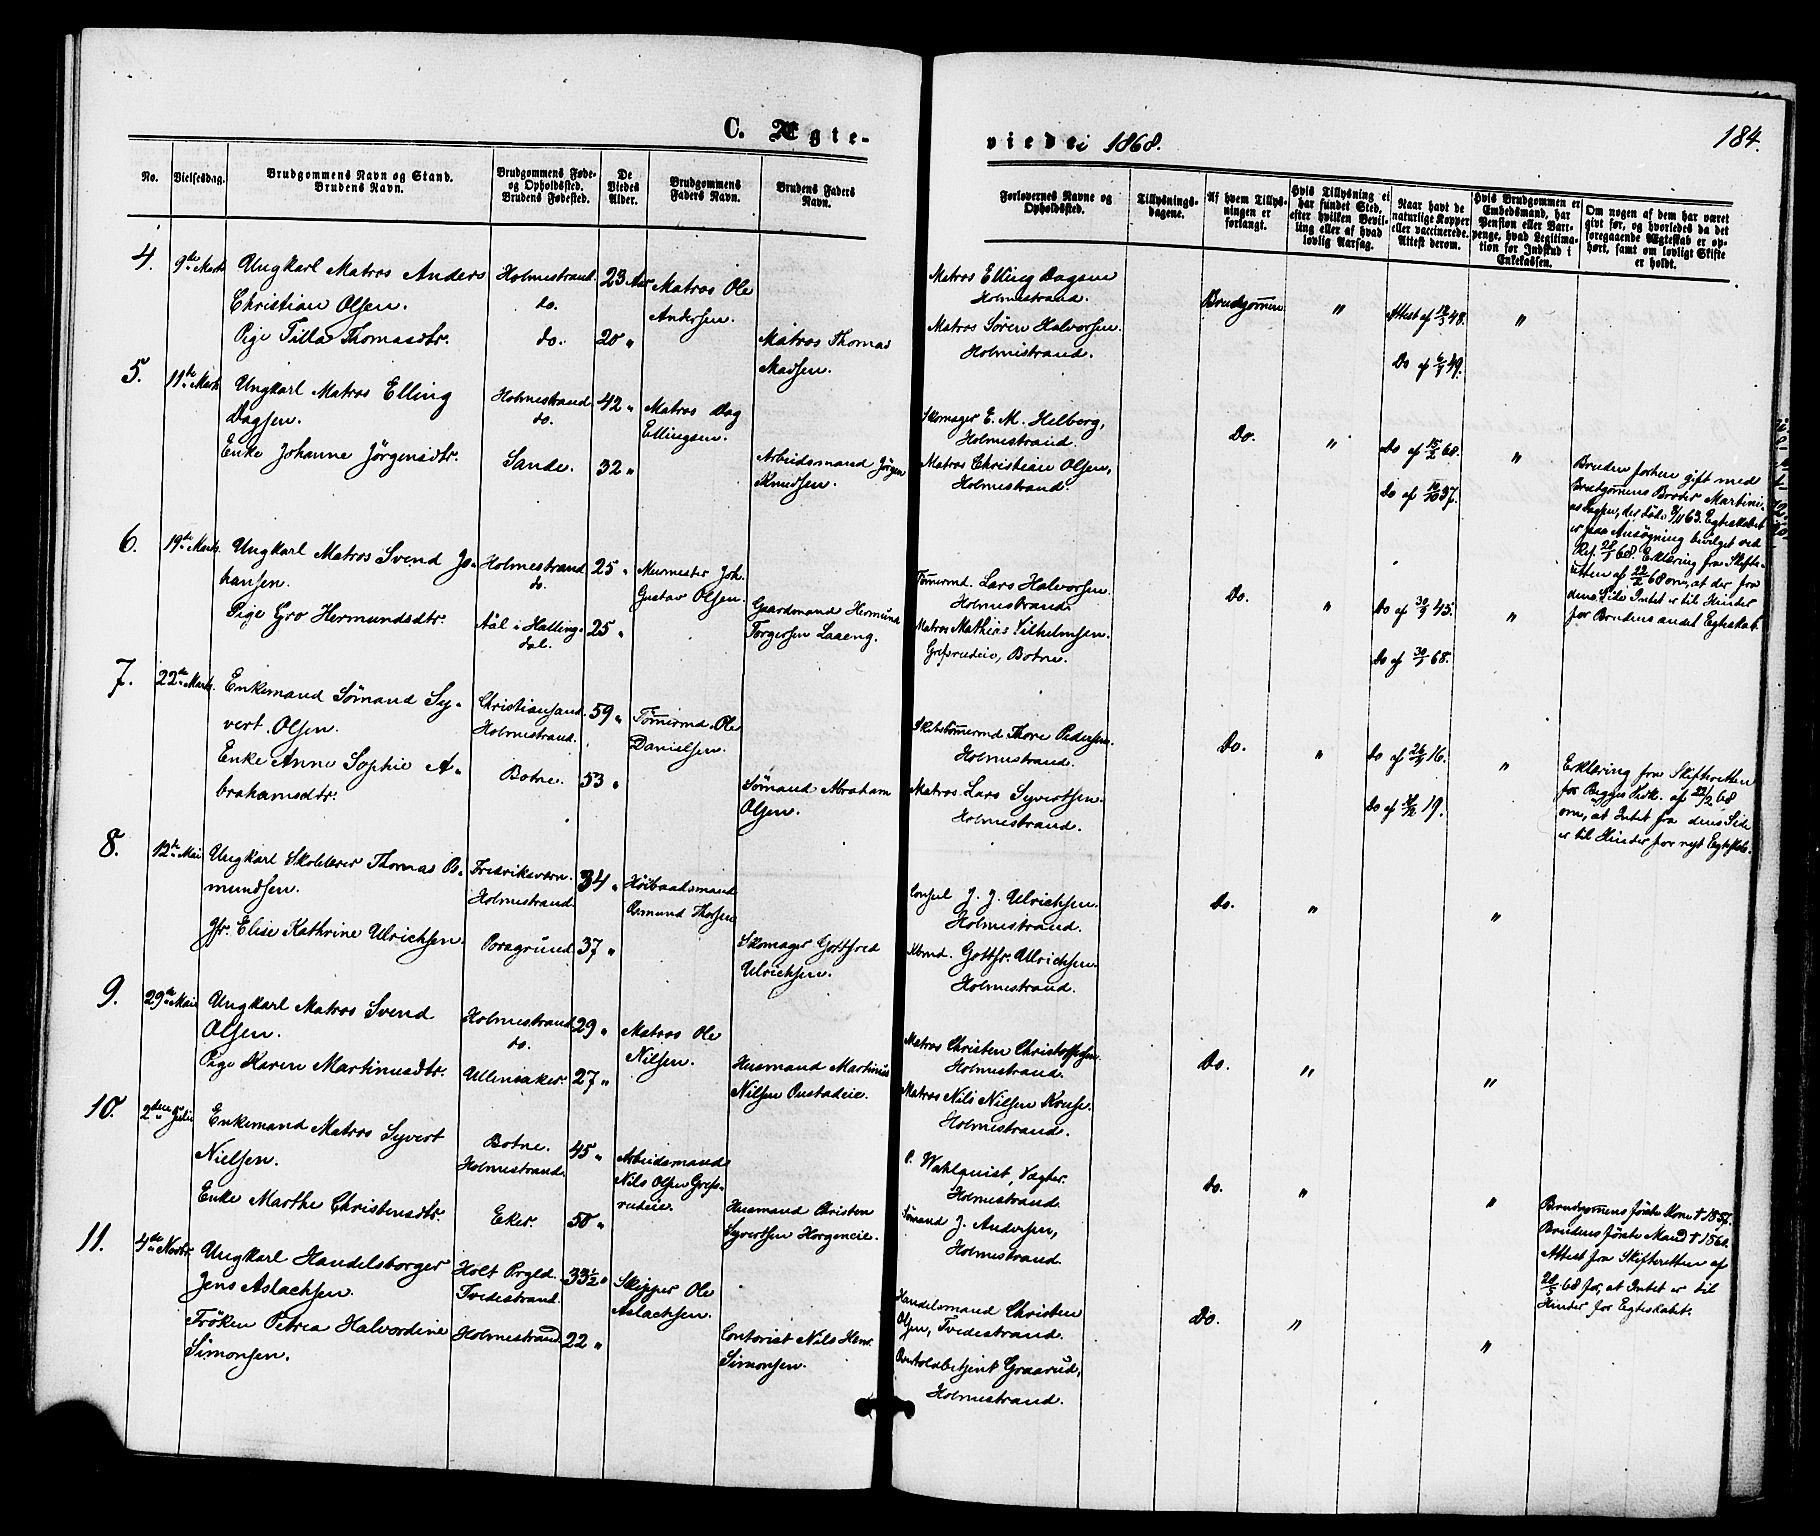 C. Ægte-
viede i 1868.
184.
No.
Vielsesdag.
Brudgommens Navn og Stand.
Brudens Navn.
Brudgommens Føde-
og Opholdssted.
Brudens Fødested.
De
Viedes
Alder.
Brudgommens
Faders Navn.
Brudens Faders
Navn.
Forlovernes Navne og
Opholdssted.
Tillysnings-
dagene.
Af hvem Tillys-
ningen er
forlangt.
Hvis Tillysning ei
har fundet Sted,
efter hvilken Bevil-
ling eller af hvad
lovlig Aarsag.
Naar havt de
naturlige Kopper
eller vaccinerede.
Attest derom.
Hvis Brudgommen er
Embedsmand, har
Pension eller Vart-
penge, hvad Legitima-
tion for Indskud i
Enkekassen.
Om nogen af dem har været
givt før, og hvorledes da det
foregaaende Ægteskab er op-
hørt, samt om lovligt Skifte
er holdt.
4.
9de Marts
Ungkarl Matros Anders
Christian Olsen.
Pige Tilla Thomasdtr.
Holmestrand
do.
do.
23 Aar
20 "
Matros Ole
Andersen.
Matros Thomas
Madsen.
Matros Elling Dagsen
Holmestrand.
Matros Sören Halvorsen.
Holmestrand.
Brudgommen
"
Attest af 48.
Do af 49.
"
5.
11te Marts
Ungkarl Matros Elling
Dagsen.
Enke Johanne Jörgensdtr.
Holmestrand
do.
Sande.
42 "
32 "
Matros Dag
Ellingsen.
Arbeidsmand Jörgen
Knudsen.
Skomager E. M. Helberg,
Holmestrand.
Matros Christian Olsen,
Holmestrand.
Do.
"
Do af 15/2 68.
Do af 37.
"
Bruden forhen gift med
Brudgommens Broder Martini-
us Dagsen, der döde 8/11 63. Egteskabet
er paa Ansögning bevilget ved
Res. 68. Erklæring fra Skifte-
retten af 22/2 68 om, at der fra
dens Side Intet er til Hinder
for Brudens andet Egteskab.
6.
19de Marts.
Ungkarl Matros Svend Jo-
hansen.
Pige Gro Hermundsdtr.
Holmestrand
do.
Aal i Halling-
dal.
25 "
25 "
Murmester Joh.
Gustav Olsen.
Gaardmand Hermund
Torgersen Laaeng.
Tömmermd. Lars Halvorsen.
Holmestrand.
Matros Mathias Vilhelmsen.
Grefsrudeie, Botne.
Do.
"
Do af 45.
Do af 68.
"
7.
22de Marts.
Enkemand Sömand Sy-
vert Olsen.
Enke Anne Sophie A-
brahamsdtr.
Christiansand.
Holmestrand.
Botne.
59 "
53 "
Tömmermd. Ole
Danielsen.
Sömand Abraham
Olsen.
Skibstömmermd Thore Pedersen.
Holmestrand.
Matros Lars Syvertsen.
Holmestrand.
Do.
"
Do af 16.
Do af 19.
"
Erklæring fra Skifteretten
for Begges Vedk. af 22/2 68
om, at Intet fra dens Side
er til Hinder for nyt Egteskab.
8.
12te Mai
Ungkarl Skolelærer Thomas O-
mundsen.
Jfr. Elise Kathrine Ulrichsen.
Fredriksværn.
Holmestrand.
Porsgrund
34 "
37 "
Höibaadsmand
Osmund Thorsen
Skomager Gottfred
Ulrichsen.
Consul J. J. Ulrichsen.
Holmestrand.
Kbmd. Gottfr. Ullrichsen.
Holmestrand.
Do.
"
"
9.
29de Mai
Ungkarl Matros Svend
Olsen.
Pige Karen Martinusdtr.
Holmestrand
do.
Ullensaker.
29 "
27 "
Matros Ole
Nilsen.
Husmand Martinus
Nilsen Onstadeie.
Matros Christen Christoffersen.
Holmestrand.
Matros Nils Nilsen Kruse.
Holmestrand.
Do.
"
"
10.
2den Juli
Enkemand Matros Syvert
Nielsen.
Enke Marthe Christensdtr.
Botne.
Holmestrand.
Eker
45 "
50 "
Arbeidsmand
Nils Olsen Grefs-
rudeie.
Husmand Christen
Syvertsen Horgeneie.
P. Wahlquist, Vægter.
Holmestrand.
Sömand J. Andersen,
Holmestrand.
Do.
"
"
Brudgommens förste Kone † 1857.
Brudens förste Mand † 1860.
Attest fra Skifteretten af
68 for, at Intet er til
Hinder for Egteskabet.
11.
4de Novbr.
Ungkarl Handelsborger
Jens Aslachsen.
Fröken Petrea Halvordine
Simonsen.
Holt Prgld.
Tvedestrand.
Holmestrand
33½ "
22 "
Skipper Ole
Aslachsen.
Contorist Nils Henr.
Simonsen.
Handelsmand Christen
Olsen, Tvedestrand.
Graarud,
Holmestrand.
Do.
"
"